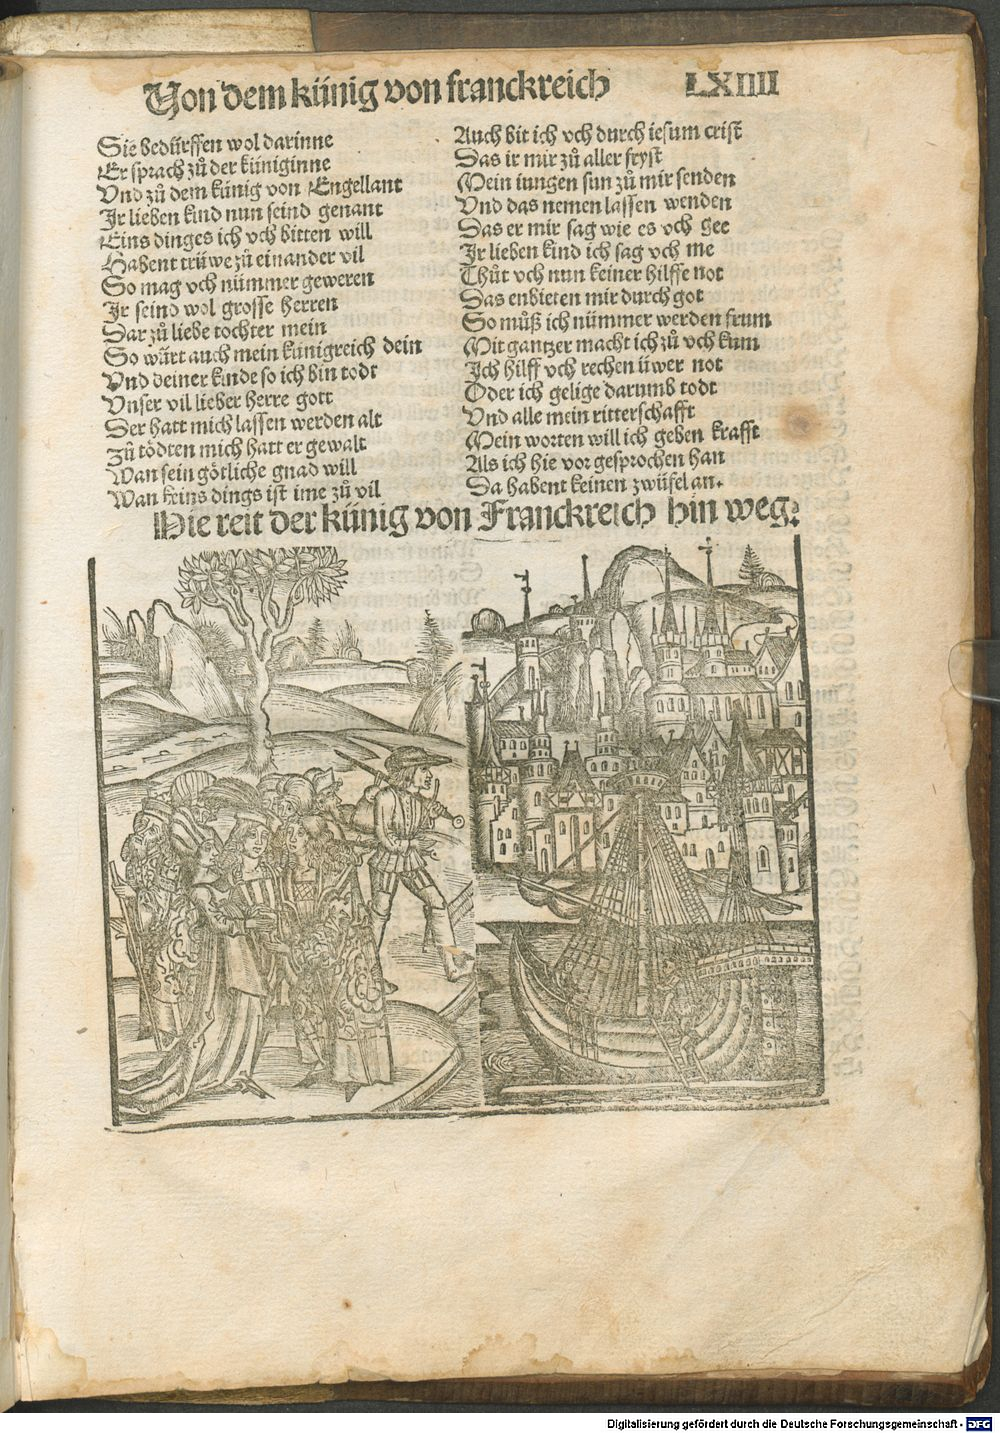 Von dem künig von franckreich LXIIII
Sie bedürffen wol darinne
Er sprach zů der küniginne
Vnd zů dem künig von Engellant
Ir lieben kind nun seind genant
Eins dinges ich vch bitten will
Habent trüwe zů einander vil
So mag vch nümmer geweren
Ir seind wol grosse herren
Dar zů liebe tochter mein
So würt auch mein künigreich dein
Vnd deiner kinde so ich bin todt
Vnser vil lieber herre gott
Der hatt mich lassen werden alt
Zů tödten mich hatt er gewalt
Wan sein götliche gnad will
Wan keins dings ist ime zů vil
Auch bit ich vch durch iesum crist
Das ir mir zů aller fryst
Mein iungen sun zů mir senden
Vnd das nemen lassen wenden
Das er mir sag wie es vch gee
Ir lieben kind ich sag vch me
Thůt vch nun keiner hilffe not
Das enbieten mir durch got
So můß ich nümmer werden frum
Mit gantzer macht ich zů vch kum
Ich hilff vch rechen üwer not
Oder ich gelige darumb todt
Vnd alle mein ritterschafft
Mein worten will ich geben krafft
Als ich hie vor gesprochen han
Da habent keinen zwüfel an.
Hie reit der künig von Franckreich hin weg.
Digitalisierung gefördert durch die Deutsche Forschungsgemeinschaft - DFG